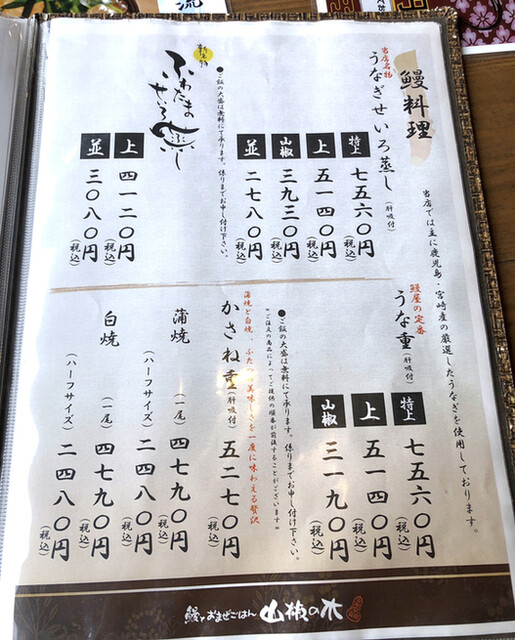 鰻料理
当店では主に鹿児島・宮崎産の厳選したうなぎを使用しております。
当店名物
うなぎせいろ蒸し(肝吸付)
特上 七五六〇円(税込)
上 五一四〇円(税込)
山椒 三九三〇円(税込)
並 二七八〇円(税込)
●ご飯の大盛は無料にて承ります。係りまでお申し付け下さい。
ふわたませいろ蒸し
上 四一二〇円(税込)
並 三〇八〇円(税込)
鰻屋の定番
うな重(肝吸付)
特上 七五六〇円(税込)
上 五一四〇円(税込)
山椒 三一九〇円(税込)
●ご飯の大盛は無料にて承ります。係りまでお申し付け下さい。
*ご注文の商品によってご提供の順番が前後することがございます*
蒲焼と白焼、ふたつの美味しさを一度に味わえる贅沢
かさね重(肝吸付) 五二七〇円(税込)
蒲焼
(一尾) 四七九〇円(税込)
(ハーフサイズ) 二四八〇円(税込)
白焼
(一尾) 四七九〇円(税込)
(ハーフサイズ) 二四八〇円(税込)
鰻とおまぜごはん 山椒の木
流